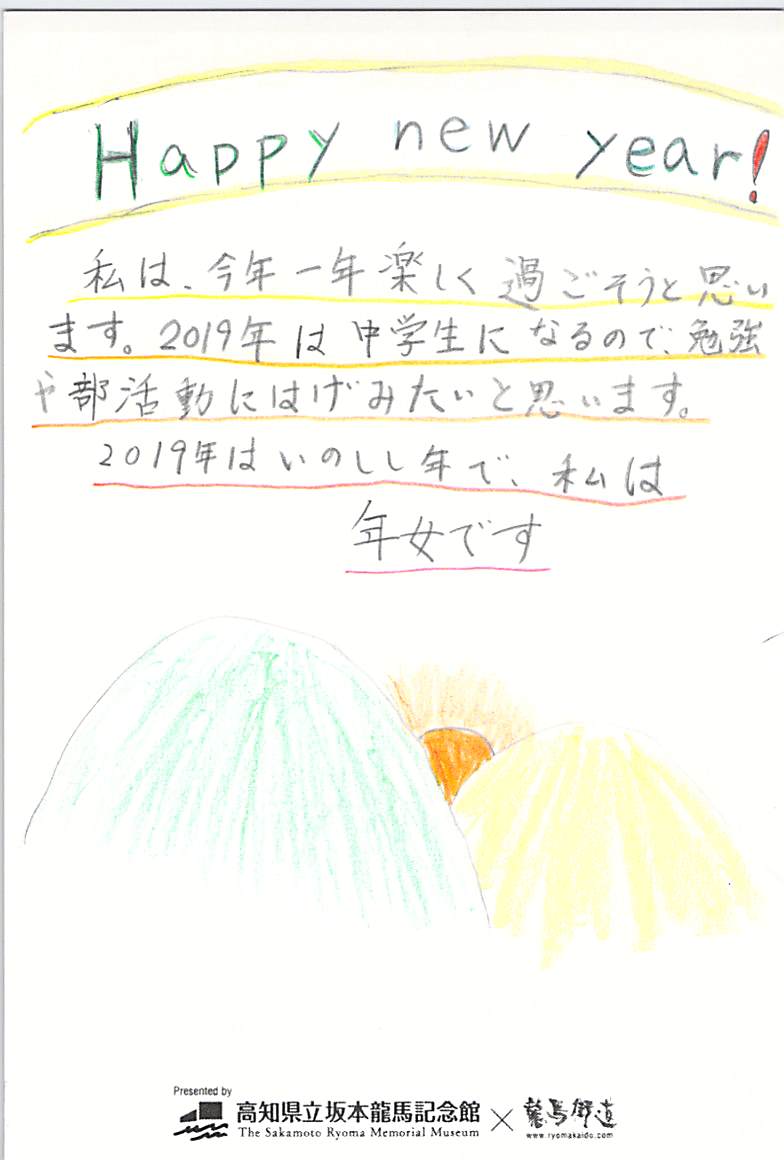 Happy new year!
私は、今年一年楽しく過ごそうと思い
ます。2019年は中学生になるので、勉強
や部活動にはげみたいと思います。
2019年はいのしし年で、私は
年女です
Presented by
高知県立坂本龍馬記念館
The Sakamoto Ryoma Memorial Museum
×
龍馬街道
www.ryomakaido.com